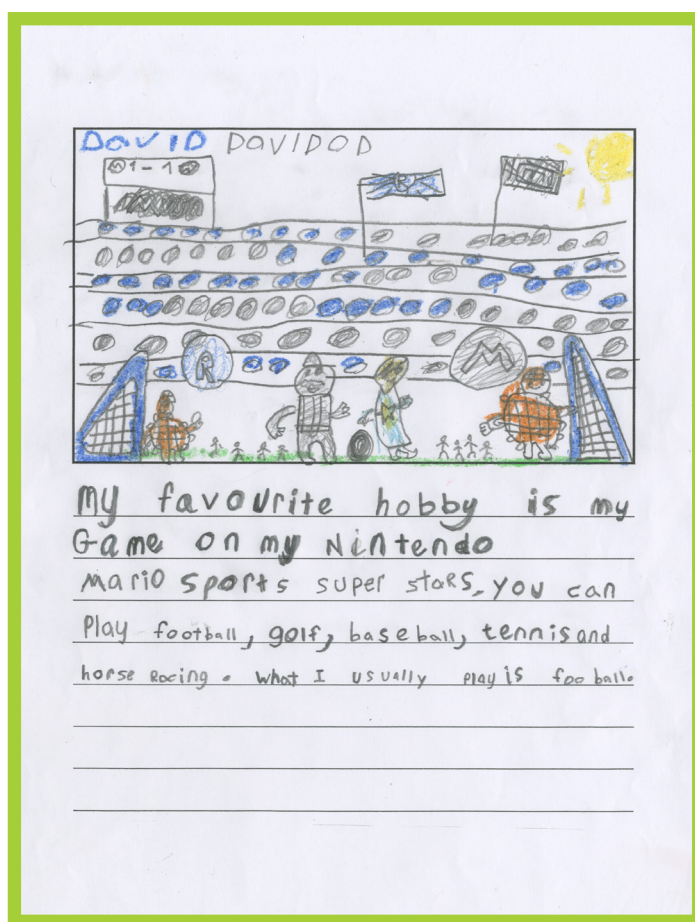 DAVID DAVIDOD
M 1-1
R
R
M
My favourite hobby is my
Game on my Nintendo
Mario Sports super staRS, you can
Play football, golf, baseball, tennis and
horse Racing. What I usually play is foo ball.